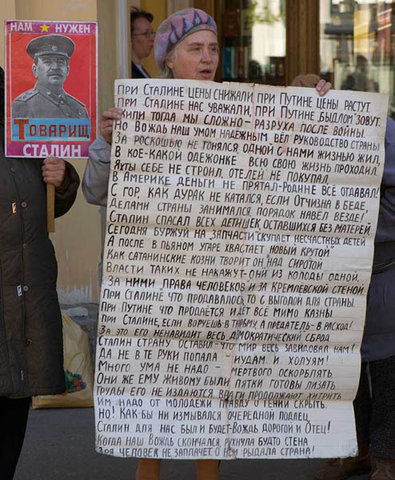 НАМ НУЖЕН
ТОВАРИЩ
СТАЛИН
ПРИ СТАЛИНЕ ЦЕНЫ СНИЖАЛИ, ПРИ ПУТИНЕ ЦЕНЫ РАСТУТ
ПРИ СТАЛИНЕ НАС УВАЖАЛИ, ПРИ ПУТИНЕ БЫДЛОМ ЗОВУТ.
ЖИЛИ ТОГДА МЫ СЛОЖНО - РАЗРУХА ПОСЛЕ ВОЙНЫ.
НО ВОЖДЬ НАШ УМОМ НАДЕЖНЫМ ВЁЛ РУКОВОДСТВО СТРАНЫ
ЗА РОСКОШЬЮ НЕ ГОНЯЛСЯ ОДНОЙ С НАМИ ЖИЗНЬЮ ЖИЛ,
В КОЕ-КАКОЙ ОДЕЖОНКЕ ВСЮ СВОЮ ЖИЗНЬ ПРОХОДИЛ
ЯХТЫ СЕБЕ НЕ СТРОИЛ, ОТЕЛЕЙ НЕ ПОКУПАЛ
В АМЕРИКЕ ДЕНЬГИ НЕ ПРЯТАЛ - РОДИНЕ ВСЁ ОТДАВАЛ!
С ГОР, КАК ДУРАК НЕ КАТАЛСЯ, ЕСЛИ ОТЧИЗНА В БЕДЕ,
ДЕЛАМИ СТРАНЫ ЗАНИМАЛСЯ, ПОРЯДОК НАВЁЛ ВЕЗДЕ!
СТАЛИН СПАСАЛ ВСЕХ ДЕТИШЕК, ОСТАВШИХСЯ БЕЗ МАТЕРЕЙ.
СЕГОДНЯ БУРЖУЙ НА ЗАПЧАСТИ СКУПАЕТ НЕСЧАСТНЫХ ДЕТЕЙ
А ПОСЛЕ В ПЬЯНОМ УГАРЕ ХВАСТАЕТ НОВЫЙ "КРУТОЙ"
КАК САТАНИНСКИЕ КОЗНИ ТВОРИТ ОН НАД СИРОТОЙ
ВЛАСТИ ТАКИХ НЕ НАКАЖУТ - ОНИ ИЗ КОЛОДЫ ОДНОЙ,
ЗА НИМИ ПРАВА ЧЕЛОВЕКОВ И ЗА КРЕМЛЕВСКОЙ СТЕНОЙ.
ПРИ СТАЛИНЕ ЧТО ПРОДАВАЛОСЬ ТО С ВЫГОДОЙ ДЛЯ СТРАНЫ.
ПРИ ПУТИНЕ ЧТО ПРОДАЁТСЯ ИДЁТ ВСЁ МИМО КАЗНЫ.
ПРИ СТАЛИНЕ, ЕСЛИ ВОРУЕШЬ В ТЮРЬМУ, А ПРЕДАТЕЛЬ - В РАСХОД!
ЗА ЭТО ЕГО НЕНАВИДИТ ВЕСЬ ДЕМОКРАТИЧЕСКИЙ СБРОД
СТАЛИН СТРАНУ ОСТАВИЛ - ЧТО МИР ВЕСЬ ЗАВИДОВАЛ НАМ!
ДА НЕ В ТЕ РУКИ ПОПАЛА - ИУДАМ И ХОЛУЯМ!
МНОГО УМА НЕ НАДО - МЕРТВОГО ОСКОРБЛЯТЬ
ОНИ ЖЕ ЕМУ ЖИВОМУ БЫЛИ ПЯТКИ ГОТОВЫ ЛИЗАТЬ
ТРУДЫ ЕГО НЕ ИЗДАЮТСЯ, ВРАГИ ПРОДОЛЖАЮТ ХИТРИТЬ
ИМ, НАДО ОТ МОЛОДЁЖИ ПРАВДУ О ГЕНИИ СКРЫТЬ.
НО! КАК БЫ НИ ИЗМЫВАЛСЯ ОЧЕРЕДНОЙ ПОДЛЕЦ
СТАЛИН ДЛЯ НАС БЫЛ И БУДЕТ - ВОЖДЬ ДОРОГОЙ И ОТЕЦ!
КОГДА НАШ ВОЖДЬ СКОНЧАЛСЯ, РУХНУЛА БУДТО СТЕНА
ЗРЯ ЧЕЛОВЕК НЕ ЗАПЛАЧЕТ А РЫДАЛА СТРАНА!